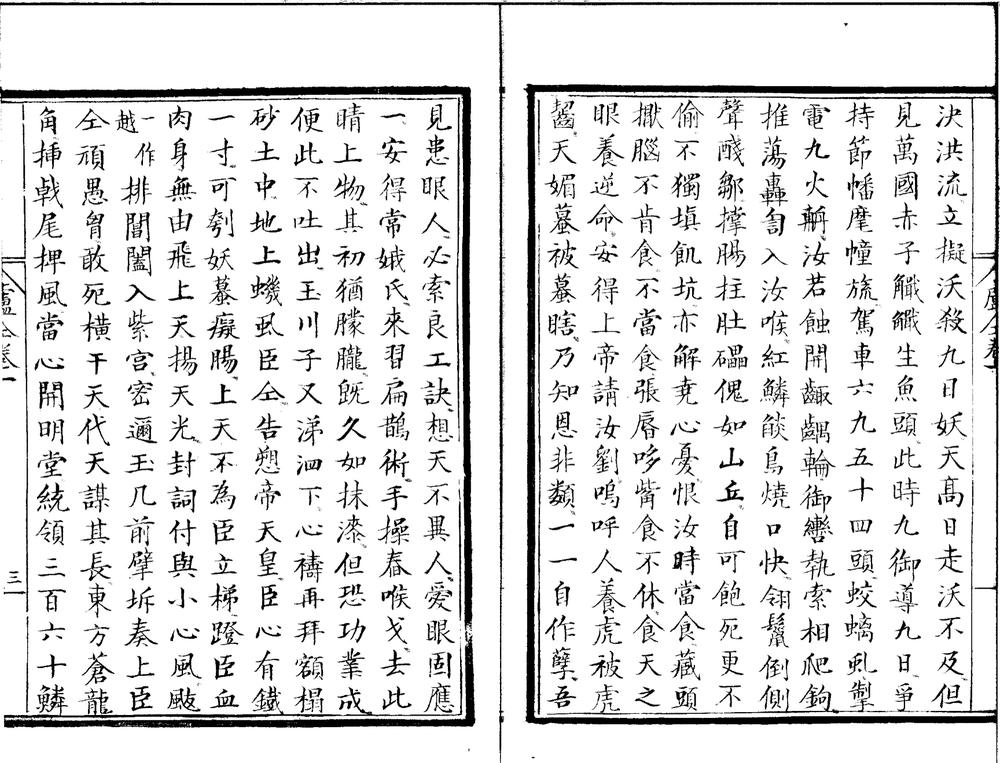 決洪流立擬沃殺九日妖天髙日走沃不及但
見萬國赤子䰰䰰生魚頭此時九御導九日爭
持節幡麾幢旒駕車六九五十四頭蛟螭虬掣
電九火輈汝若蝕開齱齵輪御轡執索相爬鉤
推蕩轟訇入汝喉紅鱗燄鳥燒口快翎鬣倒側
聲醆鄒撑腸拄肚礧傀如山丘自可飽死更不
偷不獨塡飢坑亦解堯心憂恨汝時當食藏頭
擫腦不肯食不當食張脣哆觜食不休食天之
眼養逆命安得上帝請汝劉嗚呼人養虎被虎
齧天媚蟇被蟇瞎乃知恩非類一一自作孽吾
見患眼人必索良工訣想天不異人愛眼固應
一安得常娥氏來習扁鵲術手操舂喉戈去此
睛上物其初猶朦朧旣久如抹漆但恐功業成
便此不吐出玉川子又涕泗下心禱再拜額榻
砂土中地上蟣虱臣仝告愬帝天皇臣心有鐵
一寸可刳妖蟇癡腸上天不為臣立梯蹬臣血
肉身無由飛上天揚天光封詞付與小心風颰
一作越排閶闔入紫宫密邇玉几前擘坼奏上臣
仝頑愚胷敢死横干天代天謀其長東方蒼龍
角揷戟尾捭風當心開明堂統領三百六十鱗
盧仝卷一
三